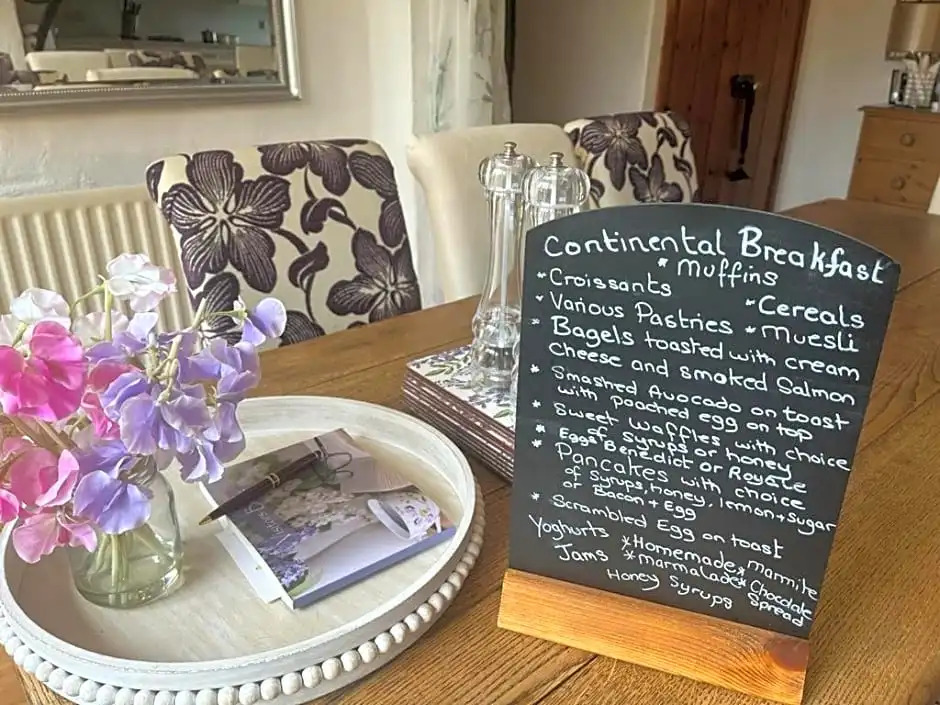 Continental Breakfast
* Muffins
* Croissants
* Cereals
* Various Pastries * Muesli
* Bagels toasted with cream
cheese and smoked Salmon
* Smashed Avocado on toast
with poached egg on top
* Sweet waffles with choice
of syrups or honey
* Eggs Benedict or Royale
* Pancakes with choice
of syrups, honey, lemon + sugar
or Bacon + Egg
* Scrambled Egg on toast
Yoghurts * Homemade * Marmite
Jams * marmalade * Chocolate
Honey Syrups Spread